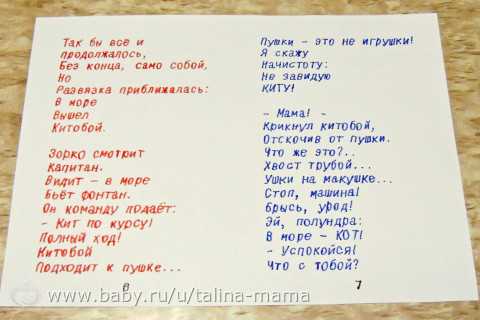 Так бы всё и
продолжалось,
Без конца, само собой,
Но
Развязка приближалась:
В море
Вышел
Китобой.
Зорко смотрит
Капитан.
Видит - в море
Бьёт фонтан.
Он команду подаёт:
- Кит по курсу!
Полный ход!
Китобой
Подходит к пушке...
6
Пушки - это не игрушки!
Я скажу
Начистоту:
Не завидую
КИТУ!
- Мама! -
Крикнул китобой,
Отскочив от пушки.
Что же это?..
Хвост трубой...
Ушки на макушке...
Стоп, машина!
Брысь, урод!
Эй, полундра:
В море - КОТ!
- Успокойся!
Что с тобой?
7
www.baby.ru/u/talina-mama